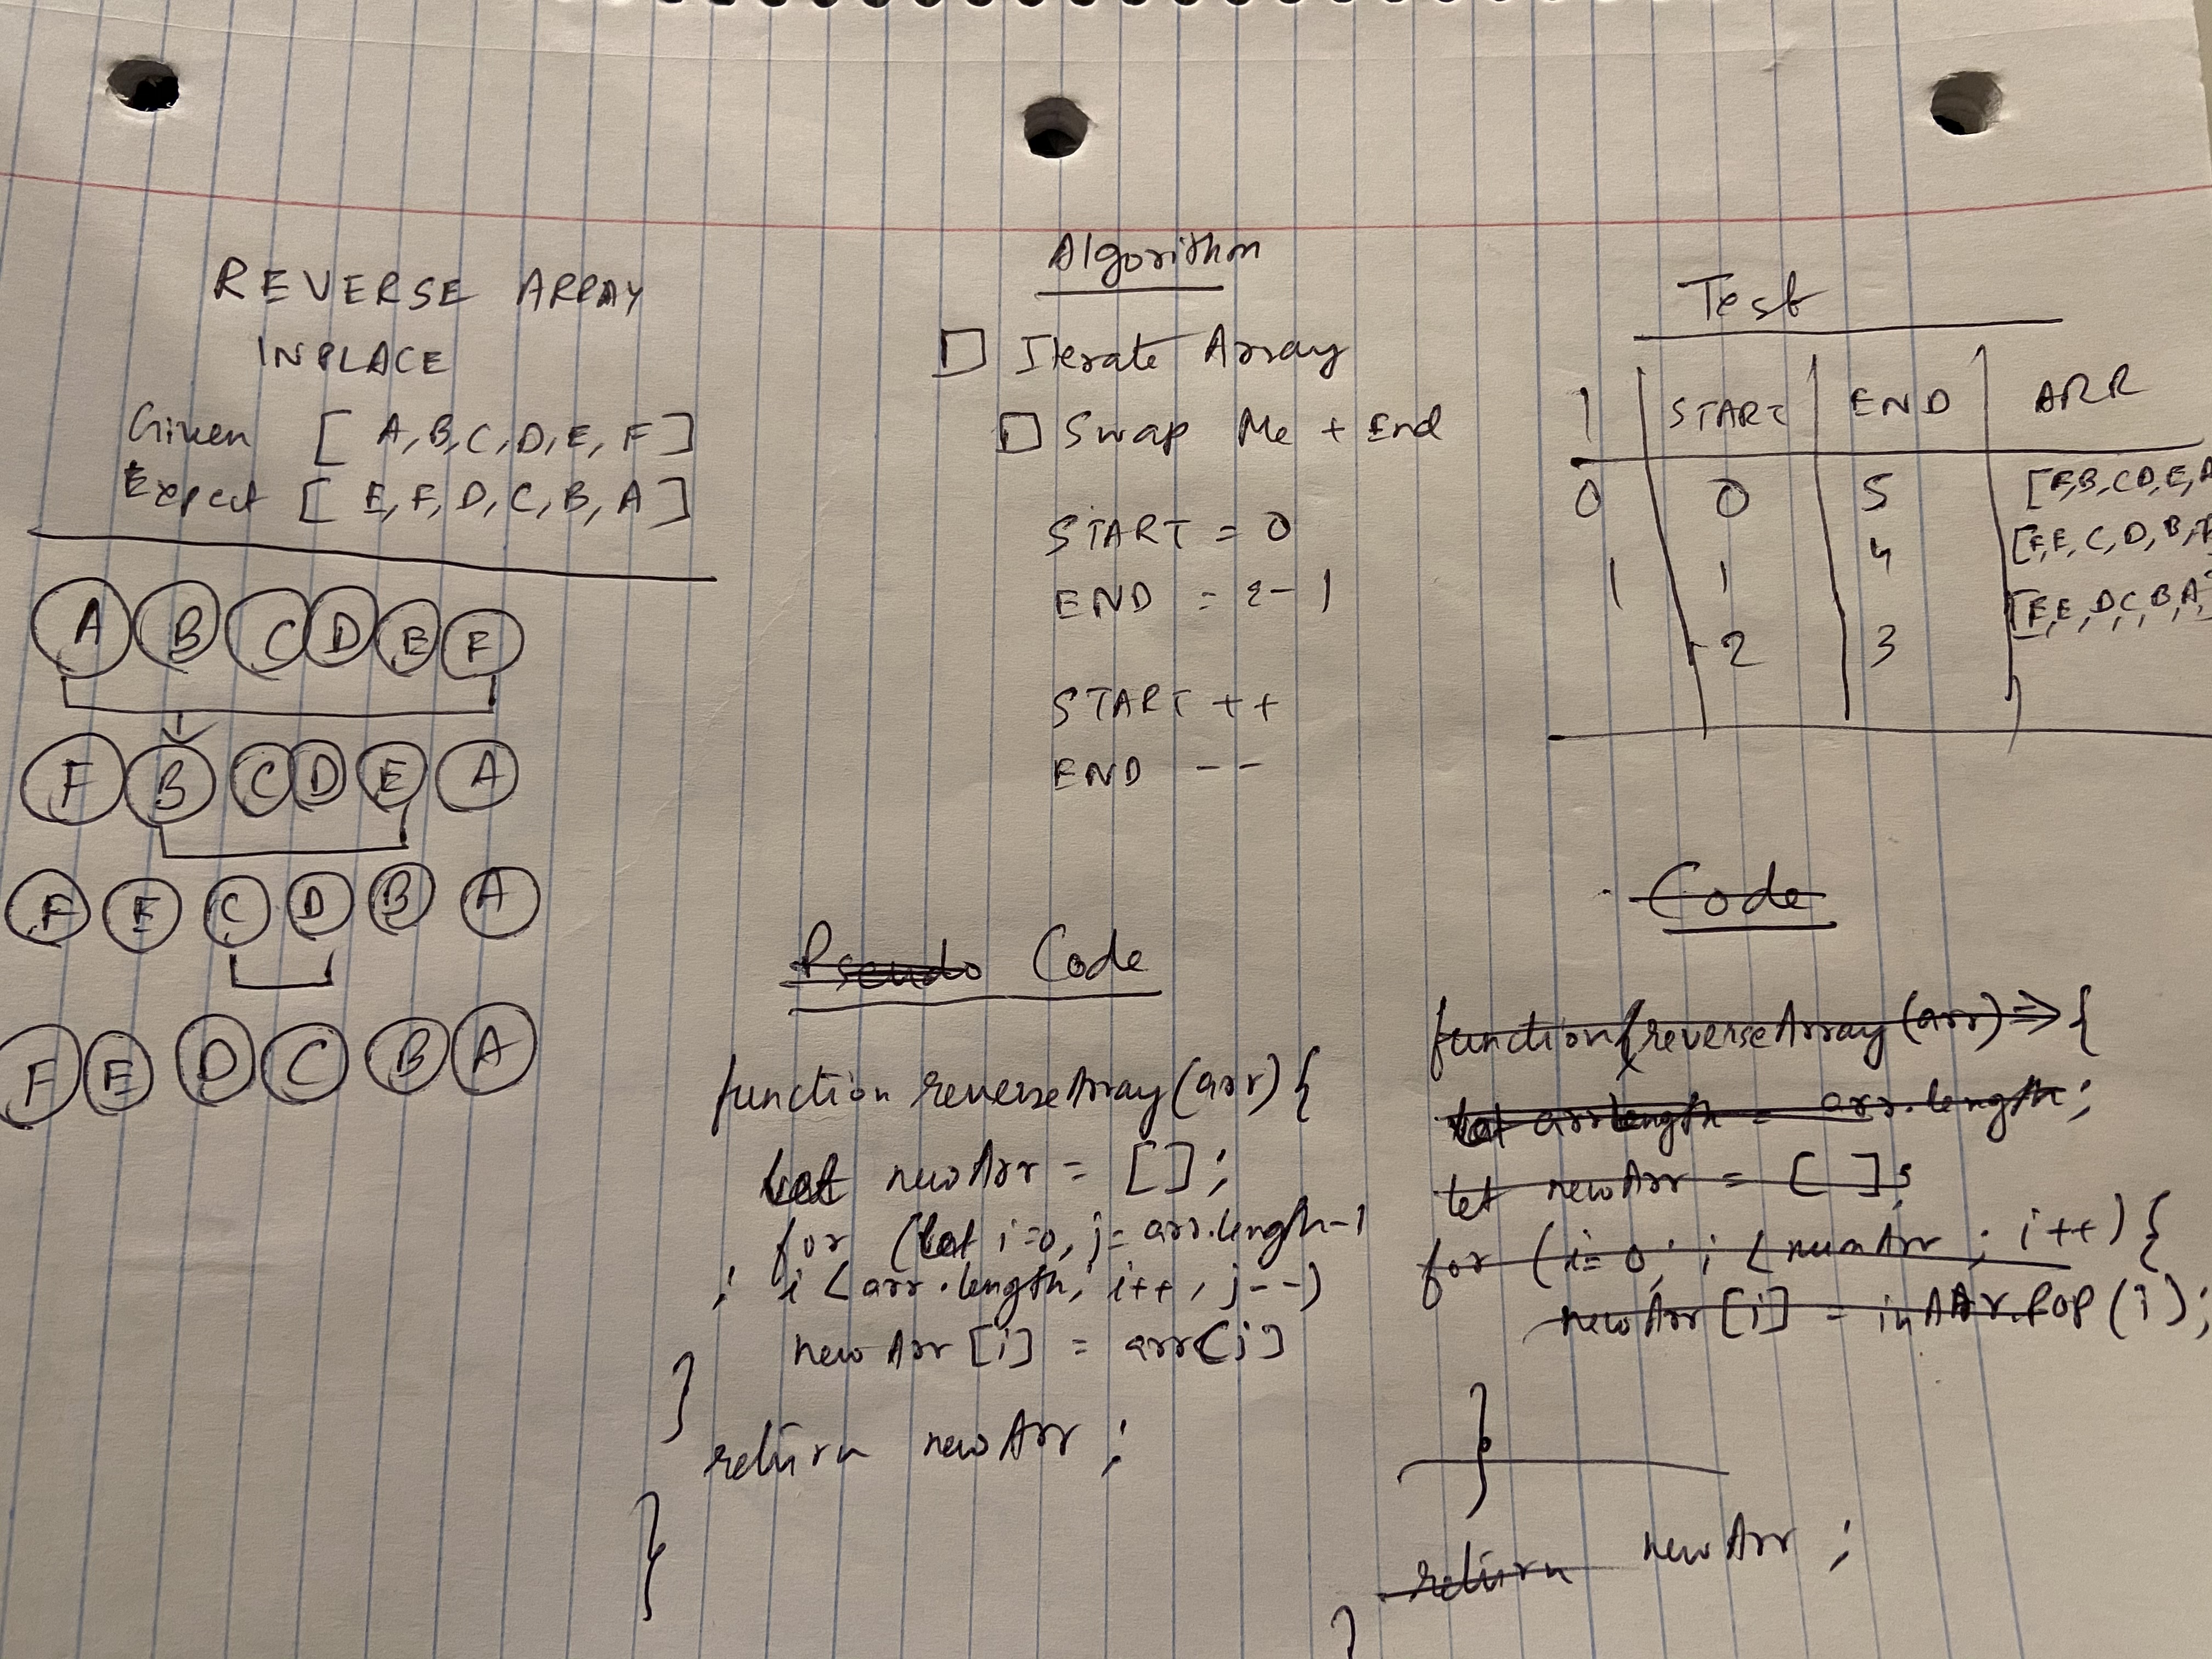 REVERSE ARRAY
INPLACE
Given [A,B,C,D,E,F]
Expect [F,E,D,C,B,A]
A B C D E F
F B C D E A
F E C D B A
F E D C B A
Algorithm
Iterate Array
Swap Me + End
START = 0
END = 2-1
START ++
END --
Pseudo Code
function reverseArray(arr){
let newArr = [];
for (let i=0, j=arr.length-1
; i < arr.length, i++, j--)
newArr[i] = arr[j]
}
return newArr ;
}
Test
1 | START | END | ARR
0 0 5 [F,B,C,D,E,A
1 1 4 [F,E,C,D,B,A
2 3 [F,E,D,C,B,A
Code
function reverseArray(arr)=>{
let arrlength = arr.length;
let newArr = [];
for (i=0; i < numArr; i++){
newArr[i] = inArr.pop(i);
}
}
return newArr ;
}